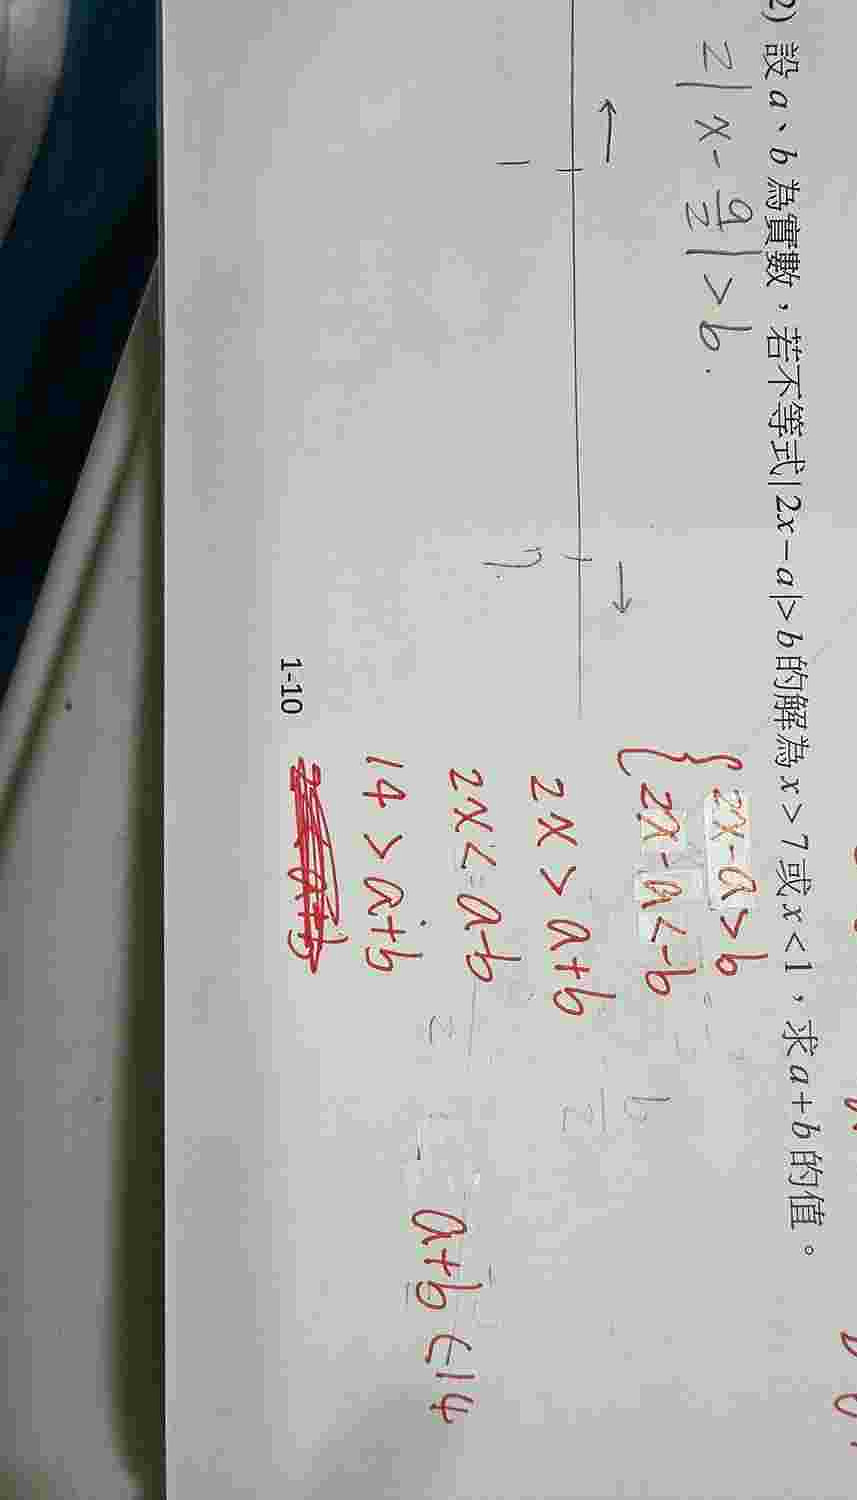 2) 設 a、b 為實數，若不等式|2x-a|>b的解為x>7或x<1，求a+b的值。
2|x-a/2|>b.
←
→
1
7.
{2x-a>b
2x-a<-b
2x>a+b
2x<a-b
14>a+b
a+b<14
b/2
2
1-10